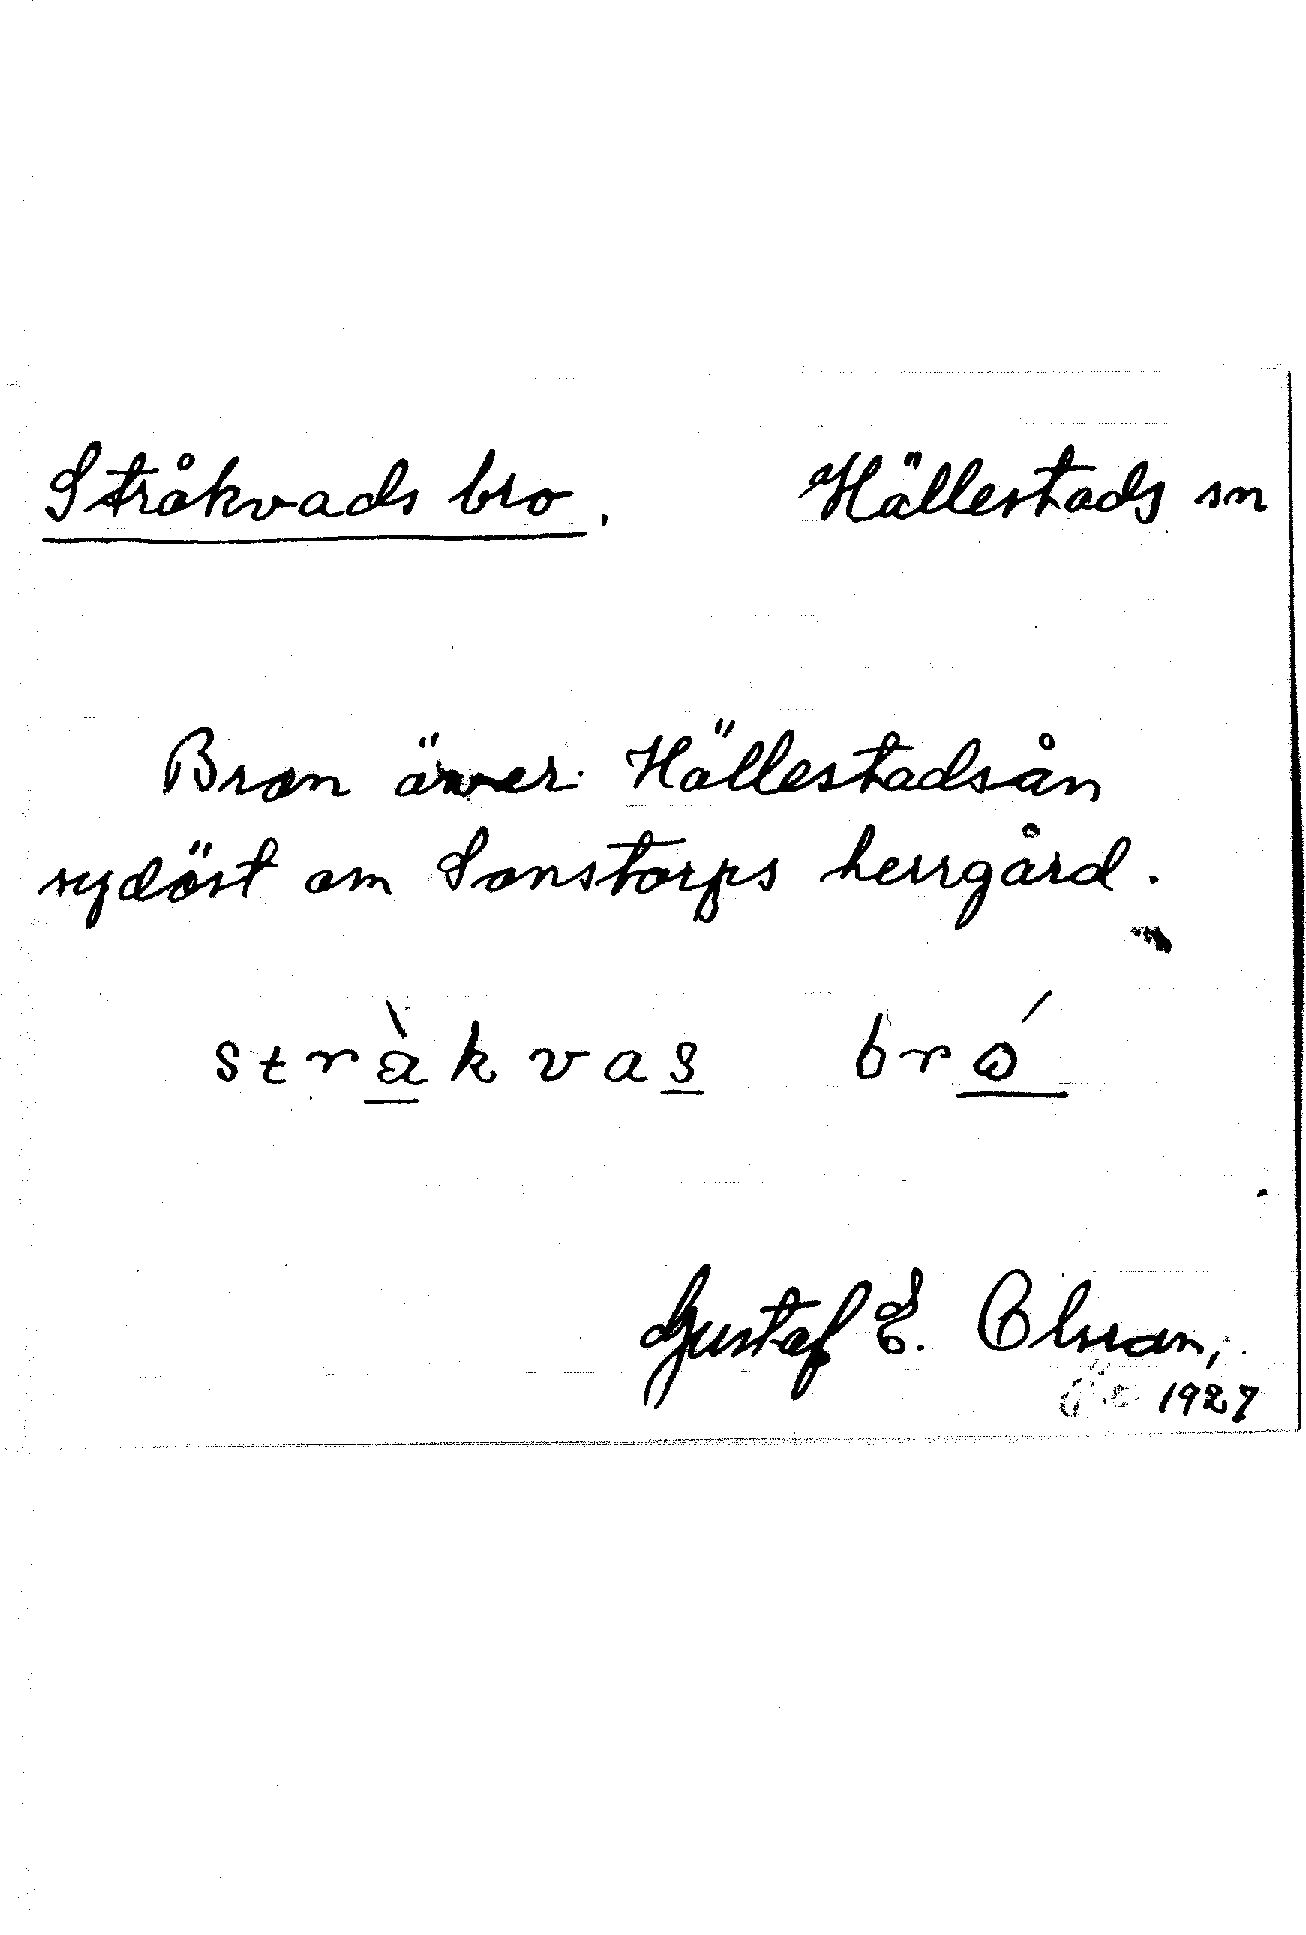 Stråkvads bro. Hällestads sn
Bron över Hällestadsån
sydöst om Sonstorps herrgård.
stràkvas bró
Gustaf E. Olsson,
1927